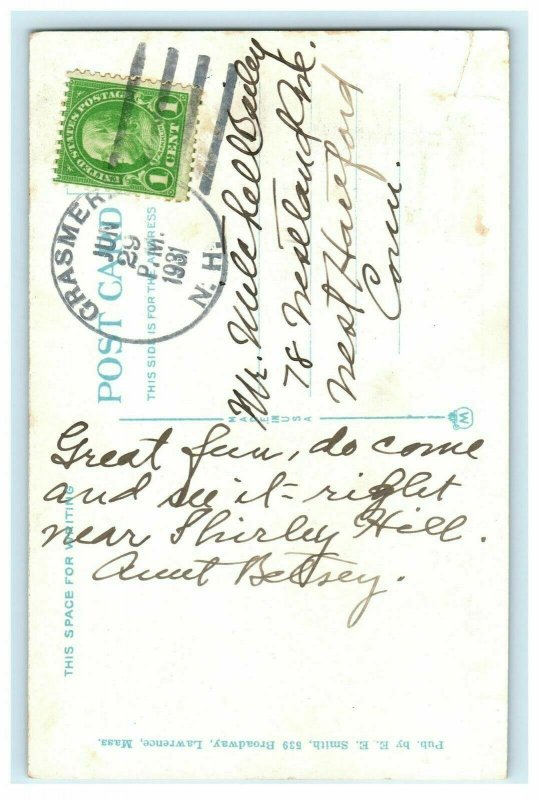 UNITED STATES POSTAGE
1 CENT 1
GRASMERE
N. H.
JUN
29
P.M.
1931
POST CARD
THIS SIDE IS FOR THE ADDRESS
Mr. Mitchell Bailey
78 Westland Ave.
West Hartford
Conn.
MADE IN USA
W
THIS SPACE FOR WRITING
Great fun, do come
and see it = right
near Shirley Hill.
Aunt Betsey.
Pub. by E. E. Smith, 539 Broadway, Lawrence, Mass.